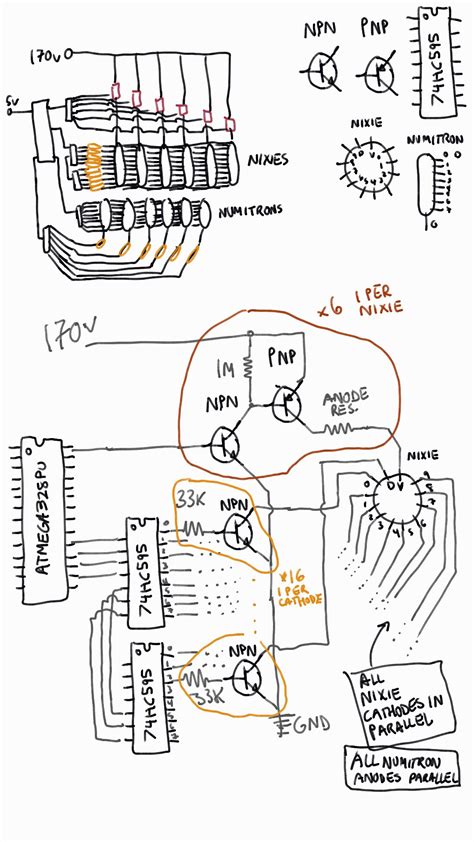 170V
5V
NIXIES
NUMITRONS
NPN
PNP
74HC595
NIXIE
NUMITRON
0
x6 1 PER
NIXIE
170V
1M
PNP
NPN
ANODE
RES.
NIXIE
ATMEGA328PU
33K
NPN
74HC595
x16
1 PER
CATHODE
NPN
33K
74HC595
GND
0
1
2
3
4
5
6
7
8
9
ALL
NIXIE
CATHODES IN
PARALLEL
ALL NUMITRON
ANODES PARALLEL